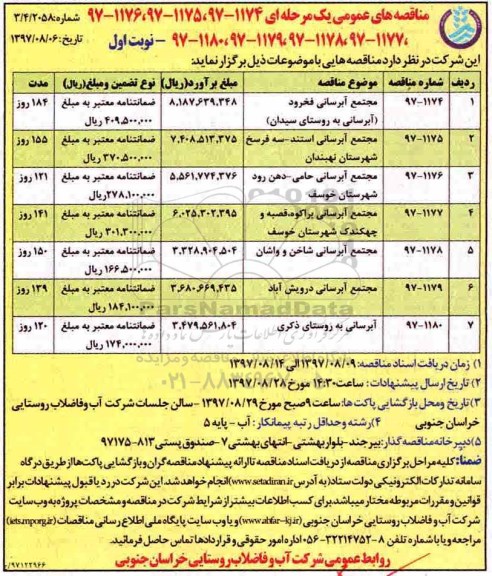 مناقصه های عمومی یک مرحله ای ۱۱۷۴-۹۷، ۱۱۷۵-۹۷، ۱۱۷۶-۹۷
شماره: ۳/۴/۲۰۵۸
۱۱۷۷-۹۷، ۱۱۷۸-۹۷، ۱۱۷۹-۹۷، ۱۱۸۰-۹۷ - نوبت اول
تاریخ: ۱۳۹۷/۰۸/۰۶
این شرکت در نظر دارد مناقصه هایی با موضوعات ذیل برگزار نماید:
ردیف شماره مناقصه موضوع مناقصه مبلغ برآورد(ریال) نوع تضمین و مبلغ(ریال) مدت
۱ ۹۷-۱۱۷۴ مجتمع آبرسانی فخرود (آبرسانی به روستای سیدان) ۸,۱۸۷,۶۳۹,۳۴۸ ضمانتنامه معتبر به مبلغ ۴۰۹,۵۰۰,۰۰۰ ریال ۱۸۴ روز
۲ ۹۷-۱۱۷۵ مجتمع آبرسانی استند-سه فرسخ شهرستان نهبندان ۷,۴۰۸,۵۱۳,۳۷۵ ضمانتنامه معتبر به مبلغ ۳۷۰,۵۰۰,۰۰۰ ریال ۱۵۵ روز
۳ ۹۷-۱۱۷۶ مجتمع آبرسانی حامی-دهن رود شهرستان خوسف ۵,۵۶۱,۷۷۴,۳۷۶ ضمانتنامه معتبر به مبلغ ۲۷۸,۱۰۰,۰۰۰ ریال ۱۲۱ روز
۴ ۹۷-۱۱۷۷ مجتمع آبرسانی براکوه،قصبه و چهکندک شهرستان خوسف ۶,۰۲۵,۳۰۲,۳۹۵ ضمانتنامه معتبر به مبلغ ۳۰۱,۳۰۰,۰۰۰ ریال ۱۴۱ روز
۵ ۹۷-۱۱۷۸ مجتمع آبرسانی شاخن و واشان ۳,۳۲۸,۹۰۴,۵۰۴ ضمانتنامه معتبر به مبلغ ۱۶۶,۵۰۰,۰۰۰ ریال ۱۵۰ روز
۶ ۹۷-۱۱۷۹ مجتمع آبرسانی درویش آباد ۳,۶۸۰,۶۶۹,۴۳۵ ضمانتنامه معتبر به مبلغ ۱۸۴,۱۰۰,۰۰۰ ریال ۱۳۹ روز
۷ ۹۷-۱۱۸۰ آبرسانی به روستای ذکری ۳,۴۷۹,۵۶۱,۸۰۴ ضمانتنامه معتبر به مبلغ ۱۷۴,۰۰۰,۰۰۰ ریال ۱۲۰ روز
ParsNamadData
۰۲۱-۸۸۳۴۹۶۷۰
۱) زمان دریافت اسناد مناقصه: ۱۳۹۷/۰۸/۰۹ الی ۱۳۹۷/۰۸/۱۴
۲) تاریخ ارسال پیشنهادات: ساعت ۱۴:۳۰ مورخ ۱۳۹۷/۰۸/۲۸
۳) تاریخ ومحل بازگشایی پاکت ها: ساعت ۹ صبح مورخ ۱۳۹۷/۰۸/۲۹ - سالن جلسات شرکت آب و فاضلاب روستایی
خراسان جنوبی ۴) رشته و حداقل رتبه پیمانکار: آب - پایه ۵
۵) دبیرخانه مناقصه گذار: بیرجند-بلوار بهشتی-انتهای بهشتی ۷-صندوق پستی ۸۱۳-۹۷۱۷۵
ضمنا: کلیه مراحل برگزاری مناقصه از دریافت اسناد مناقصه تا ارائه پیشنهاد مناقصه گران و بازگشایی پاکت ها از طریق درگاه
سامانه تدارکات الکترونیکی دولت ستاد (به آدرس www.setadiran.ir) انجام خواهد شد. این شرکت در رد یا قبول پیشنهادات برابر
قوانین و مقررات مربوطه مختار میباشد. برای کسب اطلاعات بیشتر از شرایط شرکت در مناقصه و مشخصات پروژه به وب سایت
شرکت آب و فاضلاب روستایی خراسان جنوبی (www.abfar-kj.ir) و یا وب سایت پایگاه ملی اطلاع رسانی مناقصات (iets.mporg.ir)
مراجعه و یا با شماره تلفن ۸-۳۲۲۱۴۷۵۲-۰۵۶ اداره امور حقوقی و قراردادها تماس حاصل فرمائید.
روابط عمومی شرکت آب و فاضلاب روستایی خراسان جنوبی
۹۷۱۲۲۹۶۶